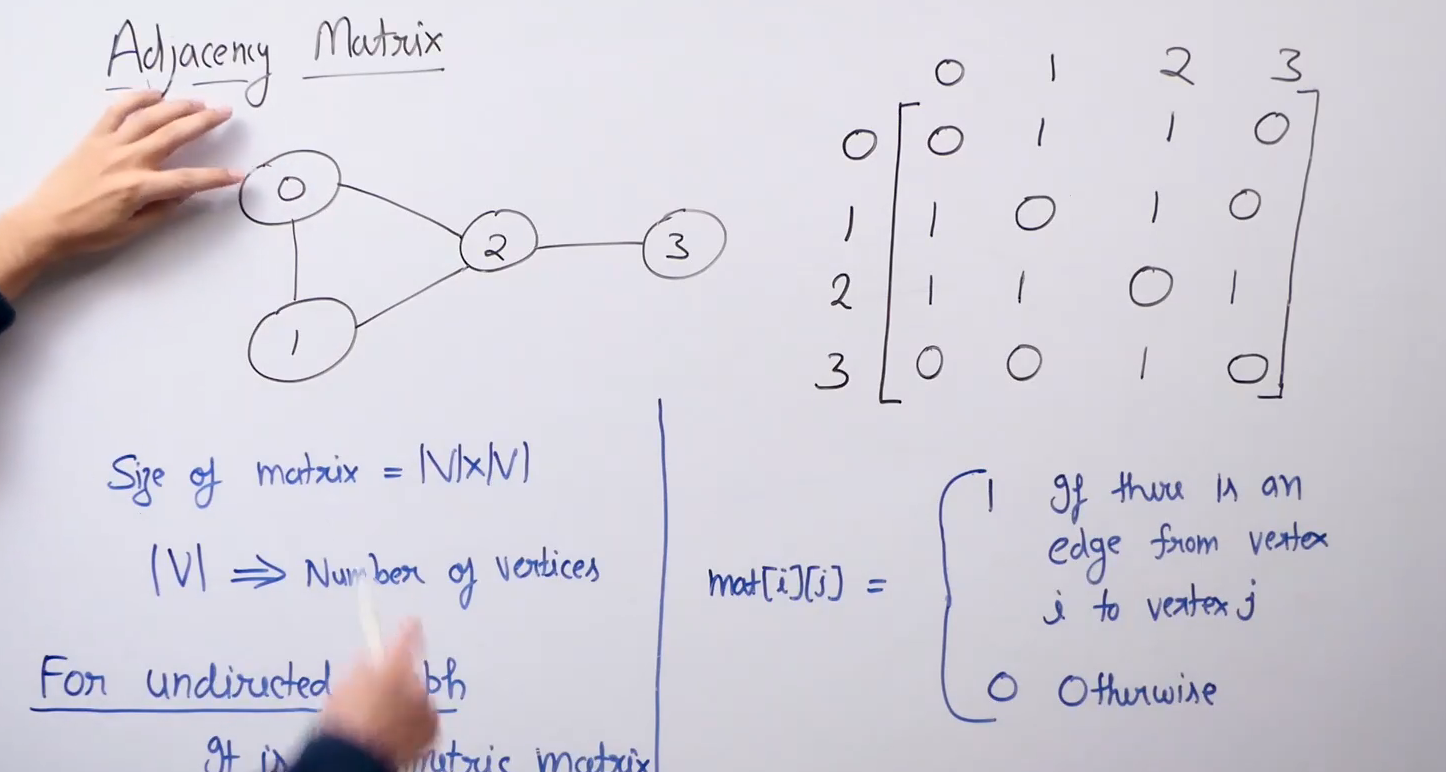 Adjacency Matrix
0
2
3
1
0 1 2 3
0 0 1 1 0
1 1 0 1 0
2 1 1 0 1
3 0 0 1 0
Size of matrix = |V|x|V|
|V| ⇒ Number of vertices
For undirected
It matrix
mat[i][j] =
1 If there is an
edge from vertex
i to vertex j
0 Otherwise